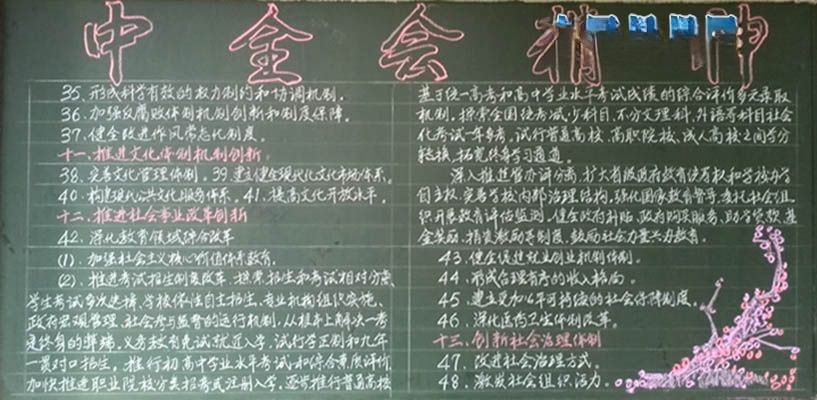 中全会精神
35、形成科学有效的权力制约和协调机制。
36、加强反腐败体制机制创新和制度保障。
37、健全改进作风常态化制度。
十一、推进文化体制机制创新
38、完善文化管理体制。39、建立健全现代化文化市场体系。
40、构建现代公共文化服务体系。41、提高文化开放水平。
十二、推进社会事业改革创新
42、深化教育领域综合改革
(1)、加强社会主义核心价值体系教育。
(2)、推进考试招生制度改革、探索招生和考试相对分离、
学生考试多次选择、学校依法自主招生、专业机构组织实施、
政府宏观管理、社会参与监督的运行机制、从根本上解决一考
定终身的弊端。义务教育免试就近入学、试行学区制和九年
一贯对口招生。推行初高中学业水平考试和综合素质评价
加快推进职业院校分类招考或注册入学。逐步推行普通高校
基于统一高考和高中学业水平考试成绩的综合评价多元录取
机制。探索全国统考减少科目、不分文理科、外语等科目社会
化考试一年多考。试行普通高校、高职院校、成人高校之间学分
转换、拓宽终身学习通道。
深入推进管办评分离、扩大省级政府教育统筹权和学校办学
自主权、完善学校内部治理结构。强化国家教育督导、委托社会组
织开展教育评估监测。健全政府补贴、政府购买服务、助学贷款、基
金奖励、捐资激励等制度、鼓励社会力量兴办教育。
43、健全促进就业创业机制体制。
44、形成合理有序的收入格局。
45、建立更加公平可持续的社会保障制度。
46、深化医药卫生体制改革。
十三、创新社会治理体制
47、改进社会治理方式。
48、激发社会组织活力。